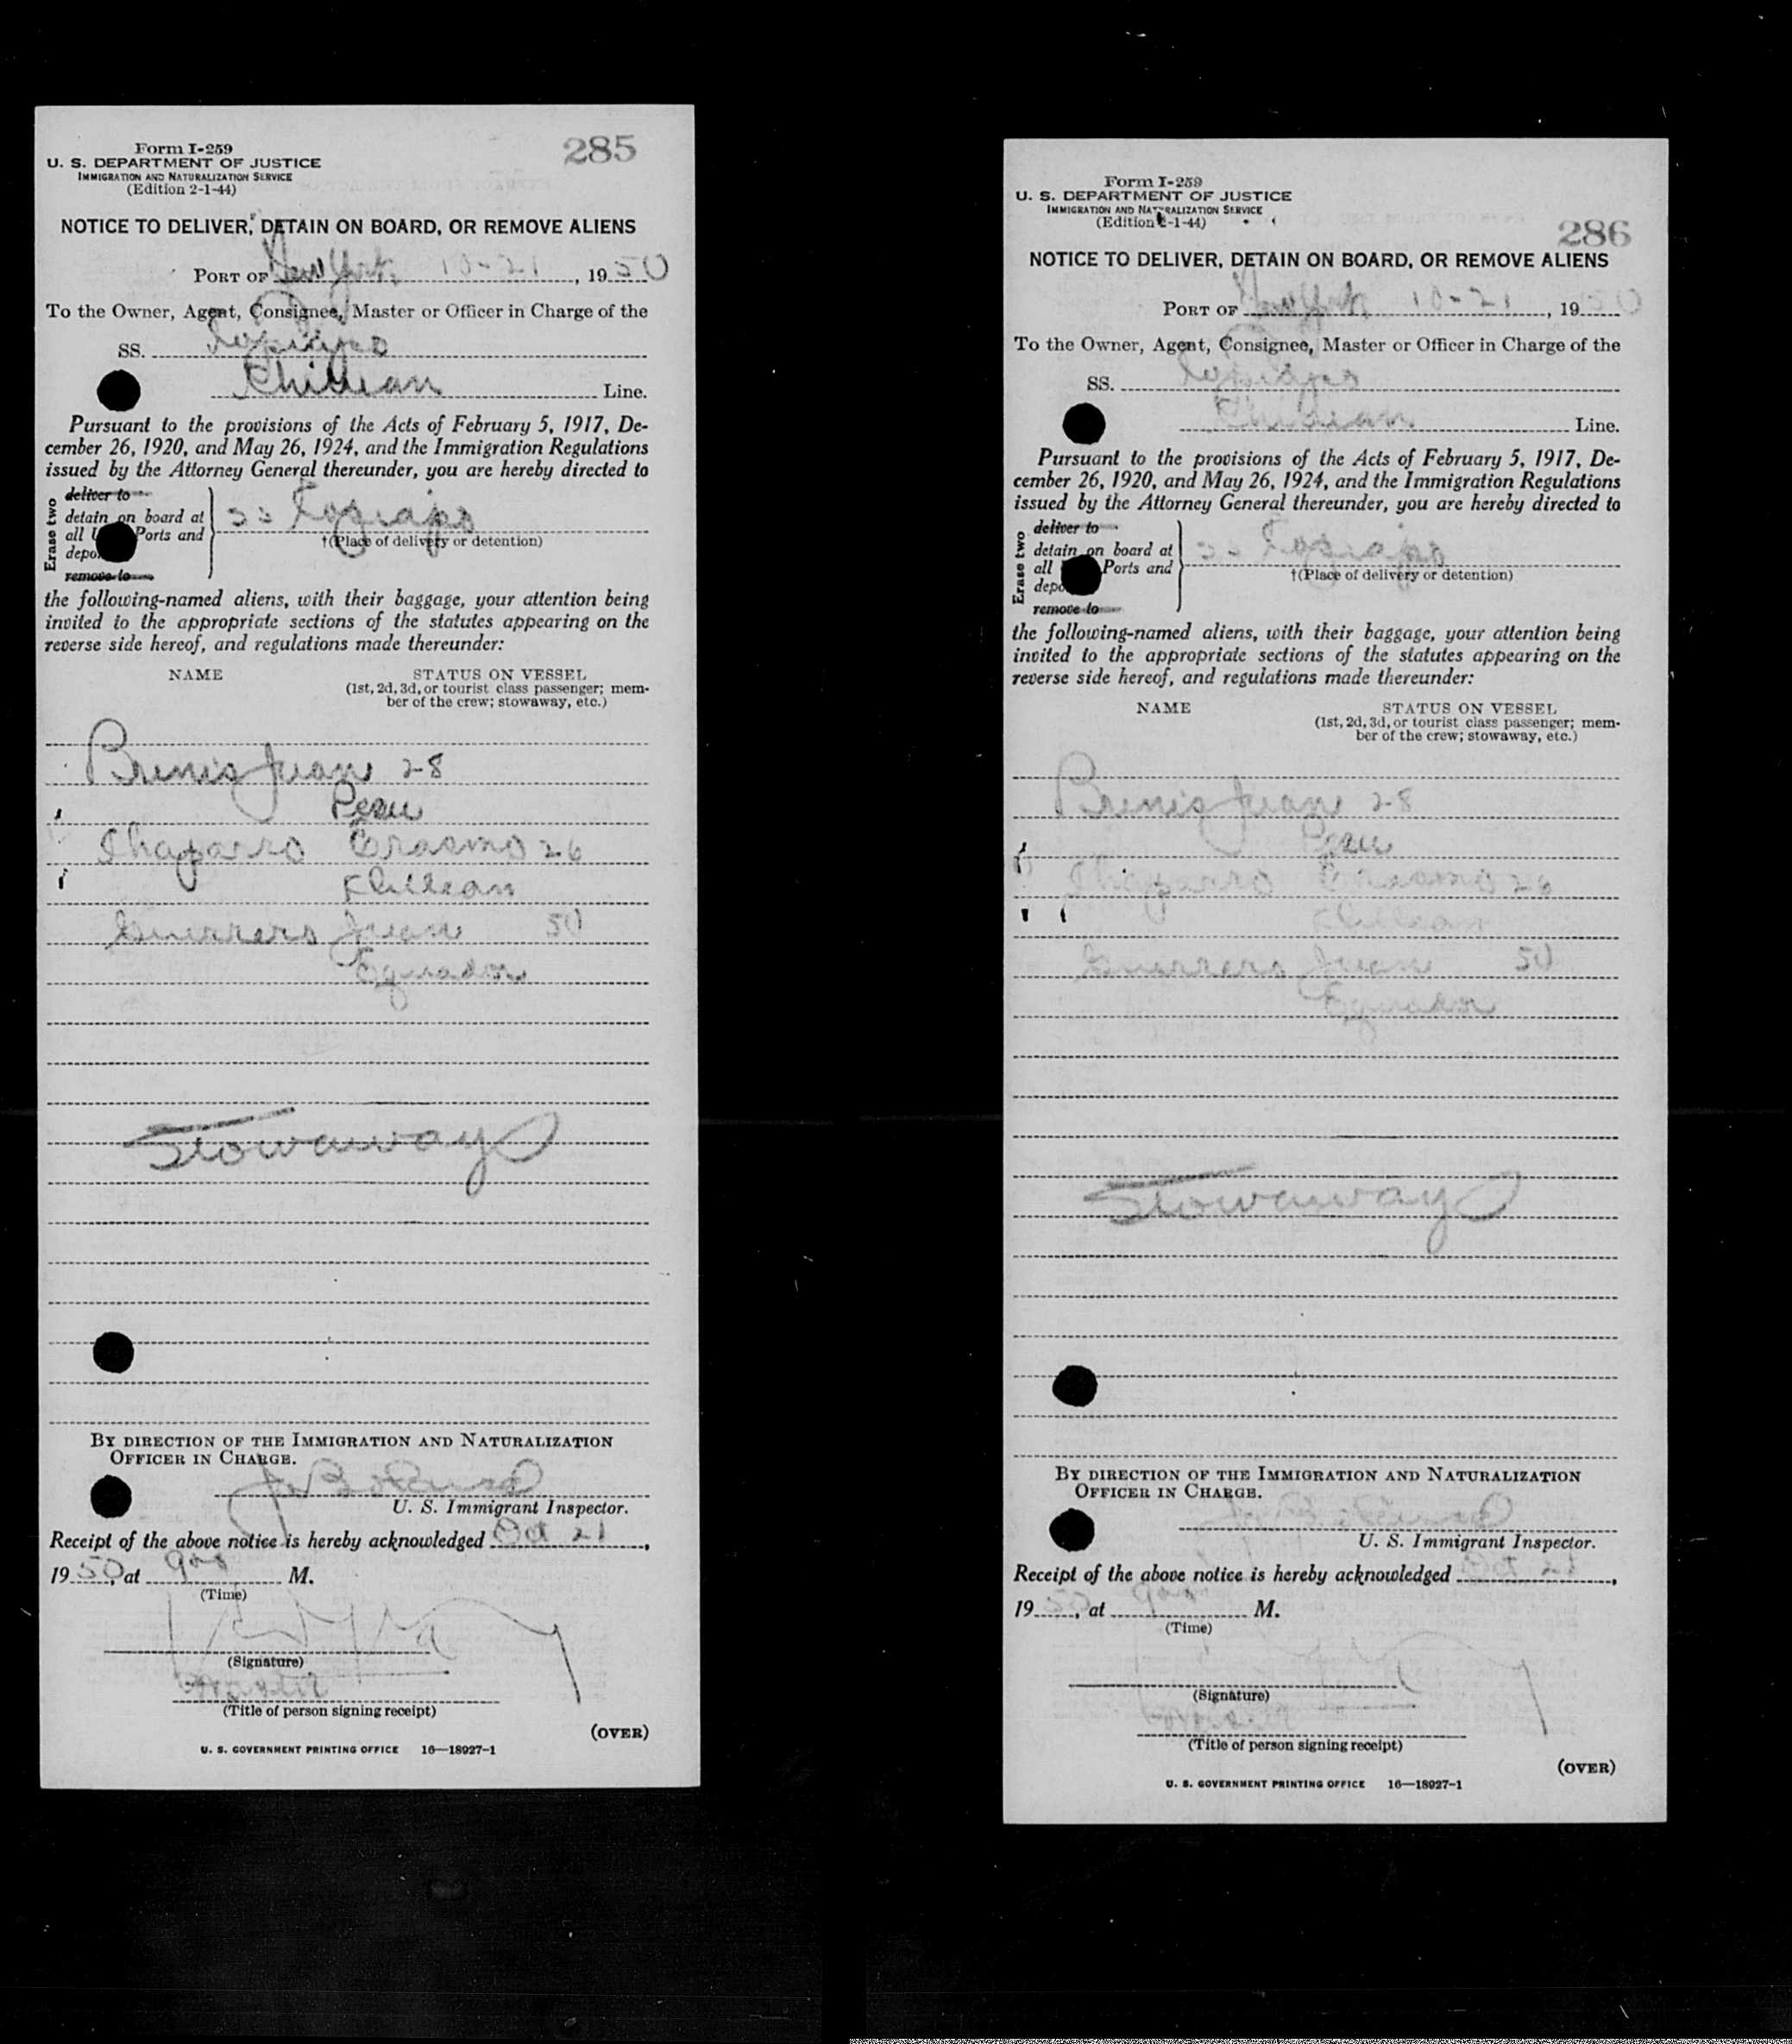 285
Form I-259
U. S. DEPARTMENT OF JUSTICE
IMMIGRATION AND NATURALIZATION SERVICE
(Edition 2-1-44)
NOTICE TO DELIVER, DETAIN ON BOARD, OR REMOVE ALIENS
PORT OF New York, 10-21, 1950
To the Owner, Agent, Consignee, Master or Officer in Charge of the
SS. Copiapo
Chilean Line.
Pursuant to the provisions of the Acts of February 5, 1917, De-
cember 26, 1920, and May 26, 1924, and the Immigration Regulations
issued by the Attorney General thereunder, you are hereby directed to
Erase two
deliver to
detain on board at
all Ports and
remove to
SS Copiapo
†(Place of delivery or detention)
the following-named aliens, with their baggage, your attention being
invited to the appropriate sections of the statutes appearing on the
reverse side hereof, and regulations made thereunder:
NAME STATUS ON VESSEL
(1st, 2d, 3d, or tourist class passenger; mem-
ber of the crew; stowaway, etc.)
Juan 28
Peru
Erasmo 26
Chilean
Guerrero Juan 50
Equador
Stowaway
BY DIRECTION OF THE IMMIGRATION AND NATURALIZATION
OFFICER IN CHARGE.
U. S. Immigrant Inspector.
Receipt of the above notice is hereby acknowledged Oct 21,
1950, at 900 M.
(Time)
(Signature)
Master
(Title of person signing receipt)
(OVER)
U. S. GOVERNMENT PRINTING OFFICE 16—18927-1
Form I-259
U. S. DEPARTMENT OF JUSTICE
IMMIGRATION AND NATURALIZATION SERVICE
(Edition 2-1-44)
286
NOTICE TO DELIVER, DETAIN ON BOARD, OR REMOVE ALIENS
PORT OF New York 10-21, 1950
To the Owner, Agent, Consignee, Master or Officer in Charge of the
SS. Copiapo
Chilean Line.
Pursuant to the provisions of the Acts of February 5, 1917, De-
cember 26, 1920, and May 26, 1924, and the Immigration Regulations
issued by the Attorney General thereunder, you are hereby directed to
Erase two
deliver to
detain on board at
all Ports and
remove to
SS Copiapo
†(Place of delivery or detention)
the following-named aliens, with their baggage, your attention being
invited to the appropriate sections of the statutes appearing on the
reverse side hereof, and regulations made thereunder:
NAME STATUS ON VESSEL
(1st, 2d, 3d, or tourist class passenger; mem-
ber of the crew; stowaway, etc.)
Juan 28
Peru
Erasmo 26
Chilean
Guerrero Juan 50
Equador
Stowaway
BY DIRECTION OF THE IMMIGRATION AND NATURALIZATION
OFFICER IN CHARGE.
U. S. Immigrant Inspector.
Receipt of the above notice is hereby acknowledged Oct 21,
1950, at 900 M.
(Time)
(Signature)
(Title of person signing receipt)
(OVER)
U. S. GOVERNMENT PRINTING OFFICE 16—18927-1